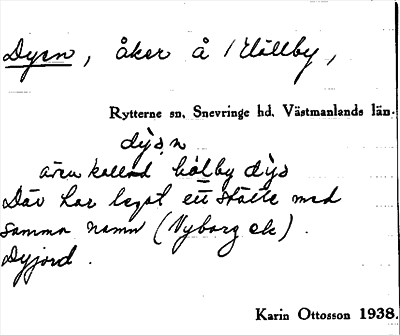 Dyen, åker å Hällby,
Rytterne sn. Snevringe hd. Västmanlands län.
dys̩n
även kallad hälby dys
Där har legat ett ställe med
samma namn (Vyborg ek).
Dyjord.
Karin Ottosson 1938.